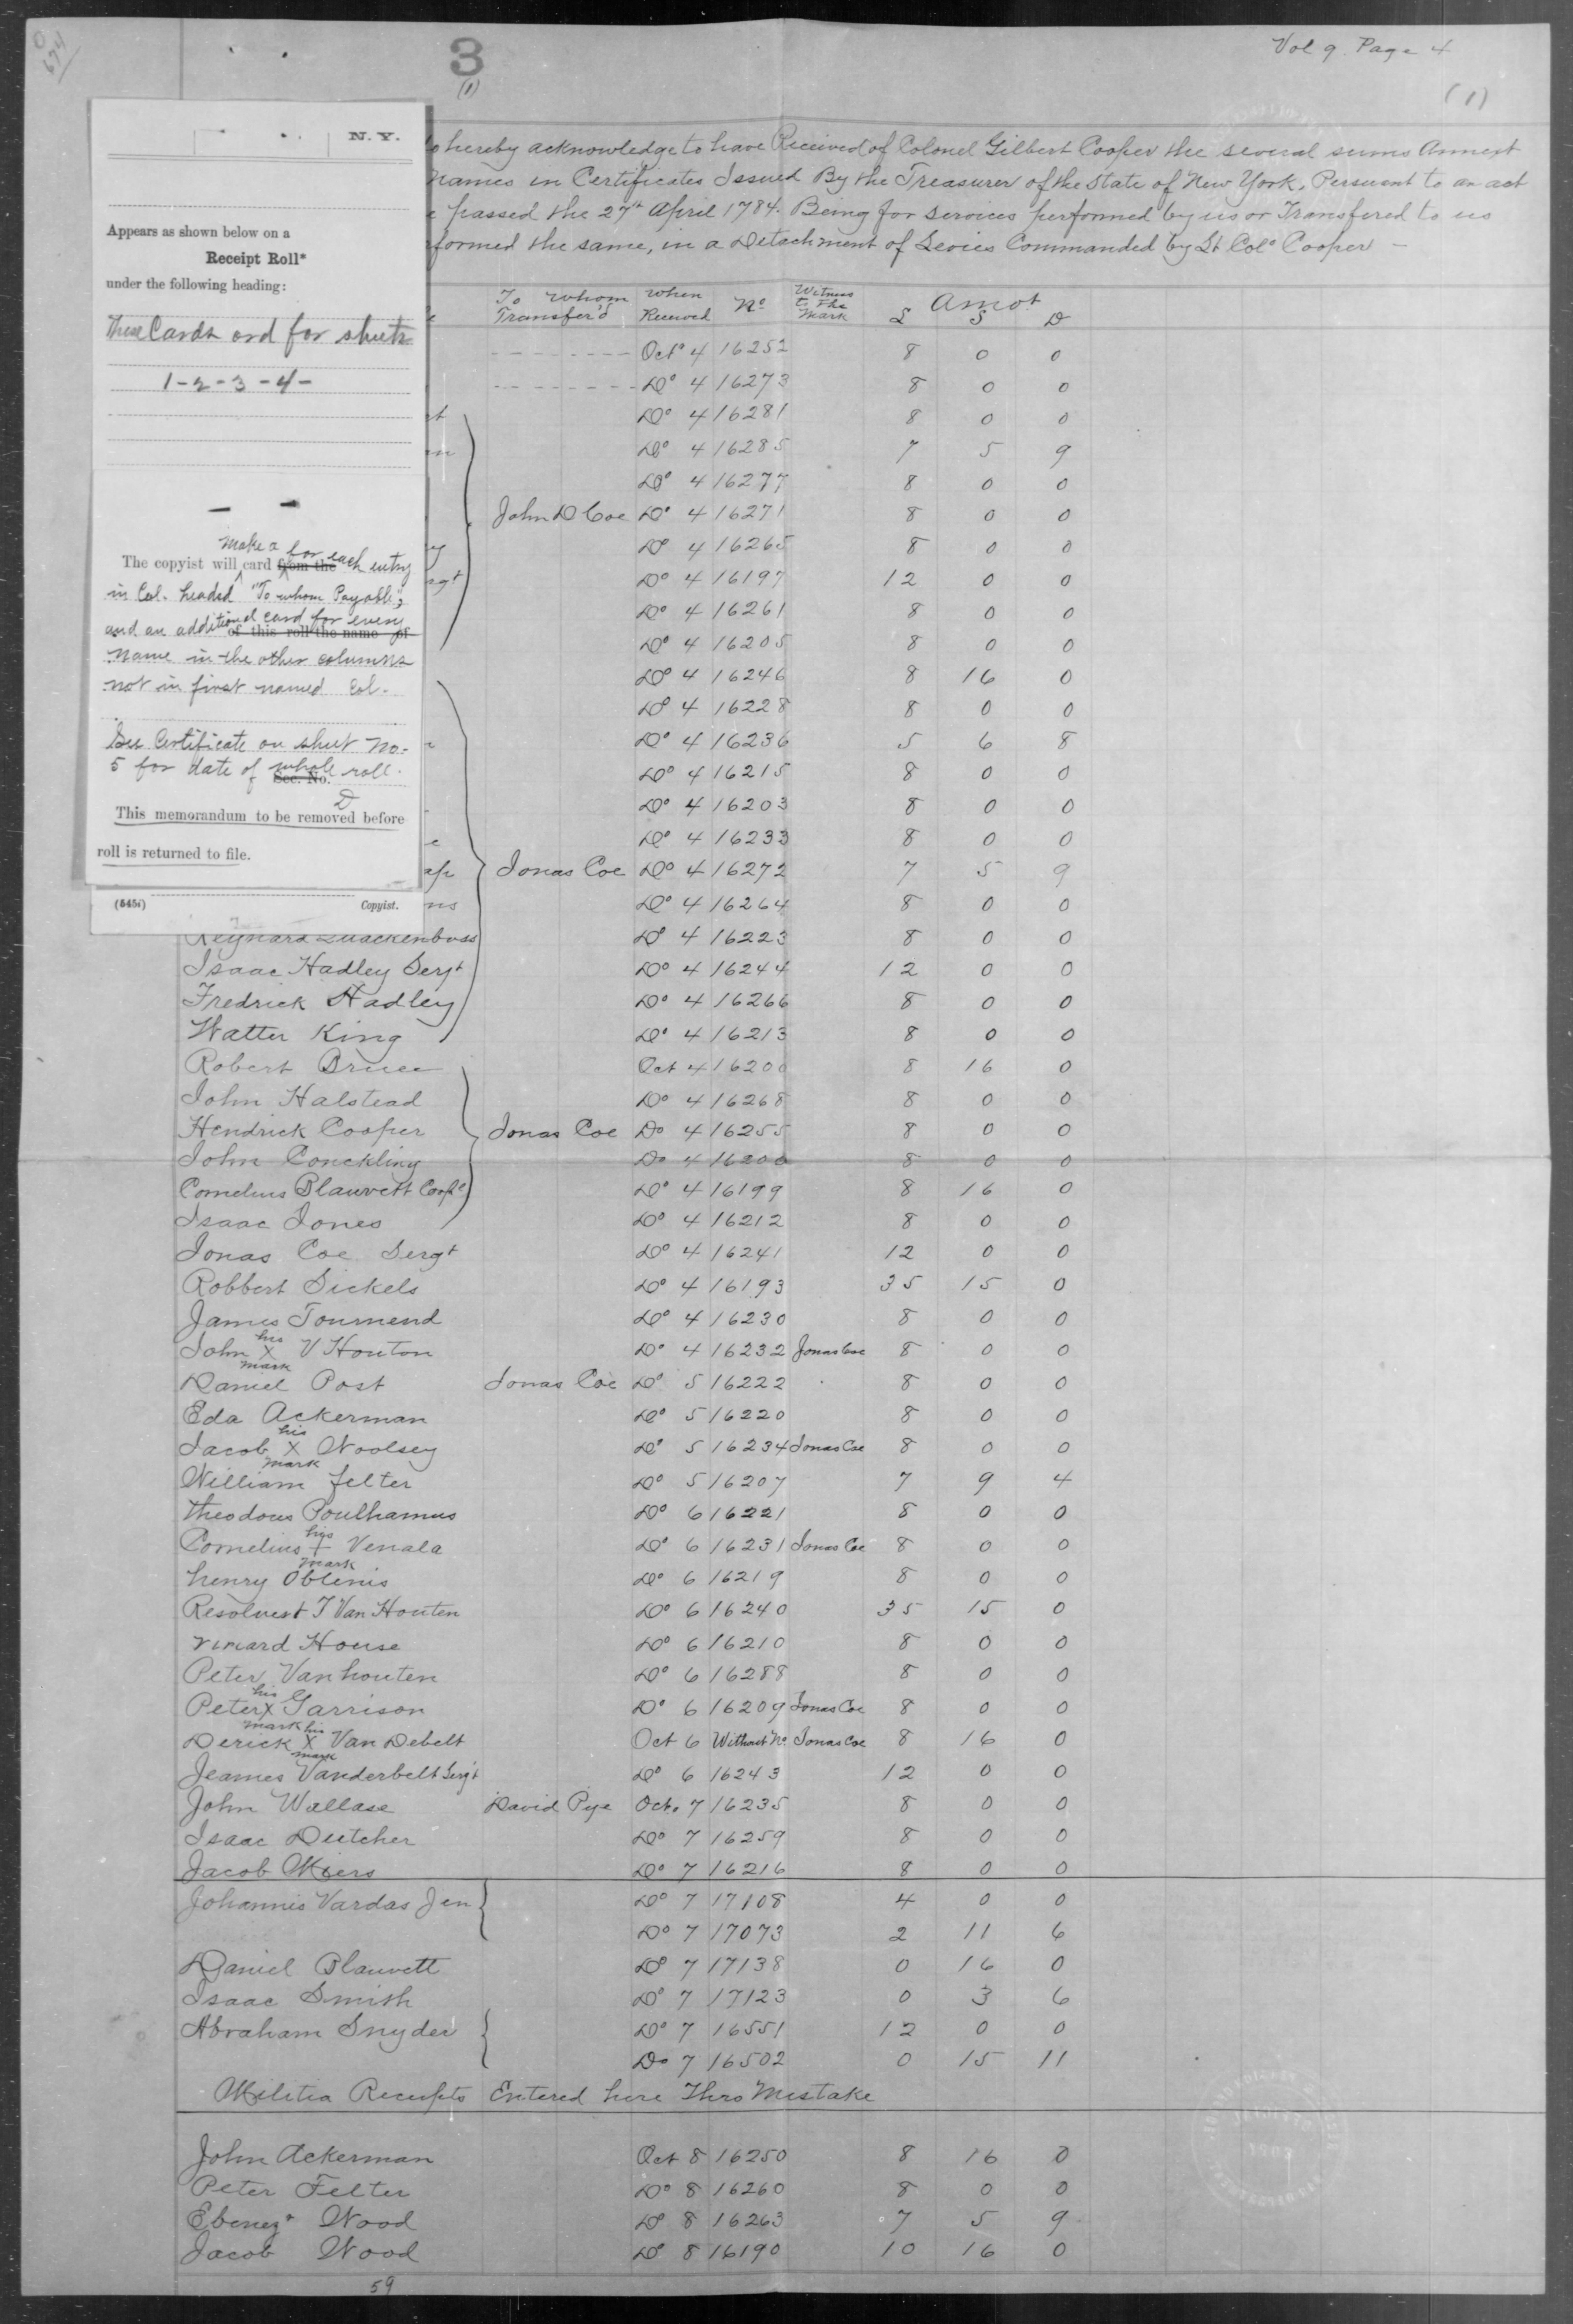 Vol 9 Page 4
3
(1)
(1)
N. Y.
Appears as shown below on a
Receipt Roll*
under the following heading:
These Cards ord for sheets
1-2-3-4-
make a for each entry
The copyist will card from the
in Col. headed "To whom Payable,"
and an additional card for every
of this roll the name of
name in the other columns
not in first named Col.
See Certificate on sheet No.
5 for date of whole roll.
Sec. No.
This memorandum to be removed before
roll is returned to file.
(545i) Copyist.
o hereby acknowledge to have Received of Colonel Gilbert Cooper the several sums Annext
names in Certificates Issued By the Treasurer of the State of New York, Persuent to an act
passed the 27th April 1784. Being for services performed by us or Transfered to us
formed the same, in a Detachment of Levies Commanded by Lt Colo Cooper -
To Whom Transfer'd When Received No Witness to The Mark Amot £ S D
Octo 4 16252 8 0 0
Do 4 16273 8 0 0
Do 4 16281 8 0 0
Do 4 16285 7 5 9
Do 4 16277 8 0 0
John D Coe Do 4 16271 8 0 0
Do 4 16265 8 0 0
Do 4 16197 12 0 0
Do 4 16261 8 0 0
Do 4 16205 8 0 0
Do 4 16246 8 16 0
Do 4 16228 8 0 0
Do 4 16236 5 6 8
Do 4 16215 8 0 0
Do 4 16203 8 0 0
Do 4 16233 8 0 0
Jonas Coe Do 4 16272 7 5 9
Do 4 16264 8 0 0
Reynard Quackenboss Do 4 16223 8 0 0
Isaac Hadley Sergt Do 4 16244 12 0 0
Fredrick Hadley Do 4 16266 8 0 0
Watter King Do 4 16213 8 0 0
Robert Bruce Oct 4 16200 8 16 0
John Halstead Do 4 16268 8 0 0
Hendrick Cooper Jonas Coe Do 4 16255 8 0 0
John Conckling Do 4 16200 8 0 0
Cornelius Blauvett Corpl Do 4 16199 8 16 0
Isaac Jones Do 4 16212 8 0 0
Jonas Coe Sergt Do 4 16241 12 0 0
Robbert Sickels Do 4 16193 35 15 0
James Tournend Do 4 16230 8 0 0
John his X mark V Houton Do 4 16232 Jonas Coe 8 0 0
Daniel Post Jonas Coe Do 5 16222 8 0 0
Eda Ackerman Do 5 16220 8 0 0
Jacob his X mark Woolsey Do 5 16234 Jonas Coe 8 0 0
William felter Do 5 16207 7 9 4
Theodorus Poulhamus Do 6 16221 8 0 0
Cornelius his + mark Venala Do 6 16231 Jonas Coe 8 0 0
henry Oblenis Do 6 16219 8 0 0
Resolvert T Van Houten Do 6 16240 35 15 0
rinard House Do 6 16210 8 0 0
Peter Vanhouten Do 6 16288 8 0 0
Peter his X mark Garrison Do 6 16209 Jonas Coe 8 0 0
Derick his X mark Van Debelt Oct 6 Without No Jonas Coe 8 16 0
Jeames Vanderbelt Sergt Do 6 16243 12 0 0
John Wallase David Pye Oct. 7 16235 8 0 0
Isaac Dutcher Do 7 16259 8 0 0
Jacob Miers Do 7 16216 8 0 0
Johannis Vardas Jen Do 7 17108 4 0 0
Do 7 17073 2 11 6
Daniel Blauvett Do 7 17138 0 16 0
Isaac Smith Do 7 17123 0 3 6
Abraham Snyder Do 7 16551 12 0 0
Do 7 16502 0 15 11
Militia Receipts Entered here Thro Mistake
John Ackerman Oct 8 16250 8 16 0
Peter Felter Do 8 16260 8 0 0
Ebenezr Wood Do 8 16263 7 5 9
Jacob Wood Do 8 16190 10 16 0
59